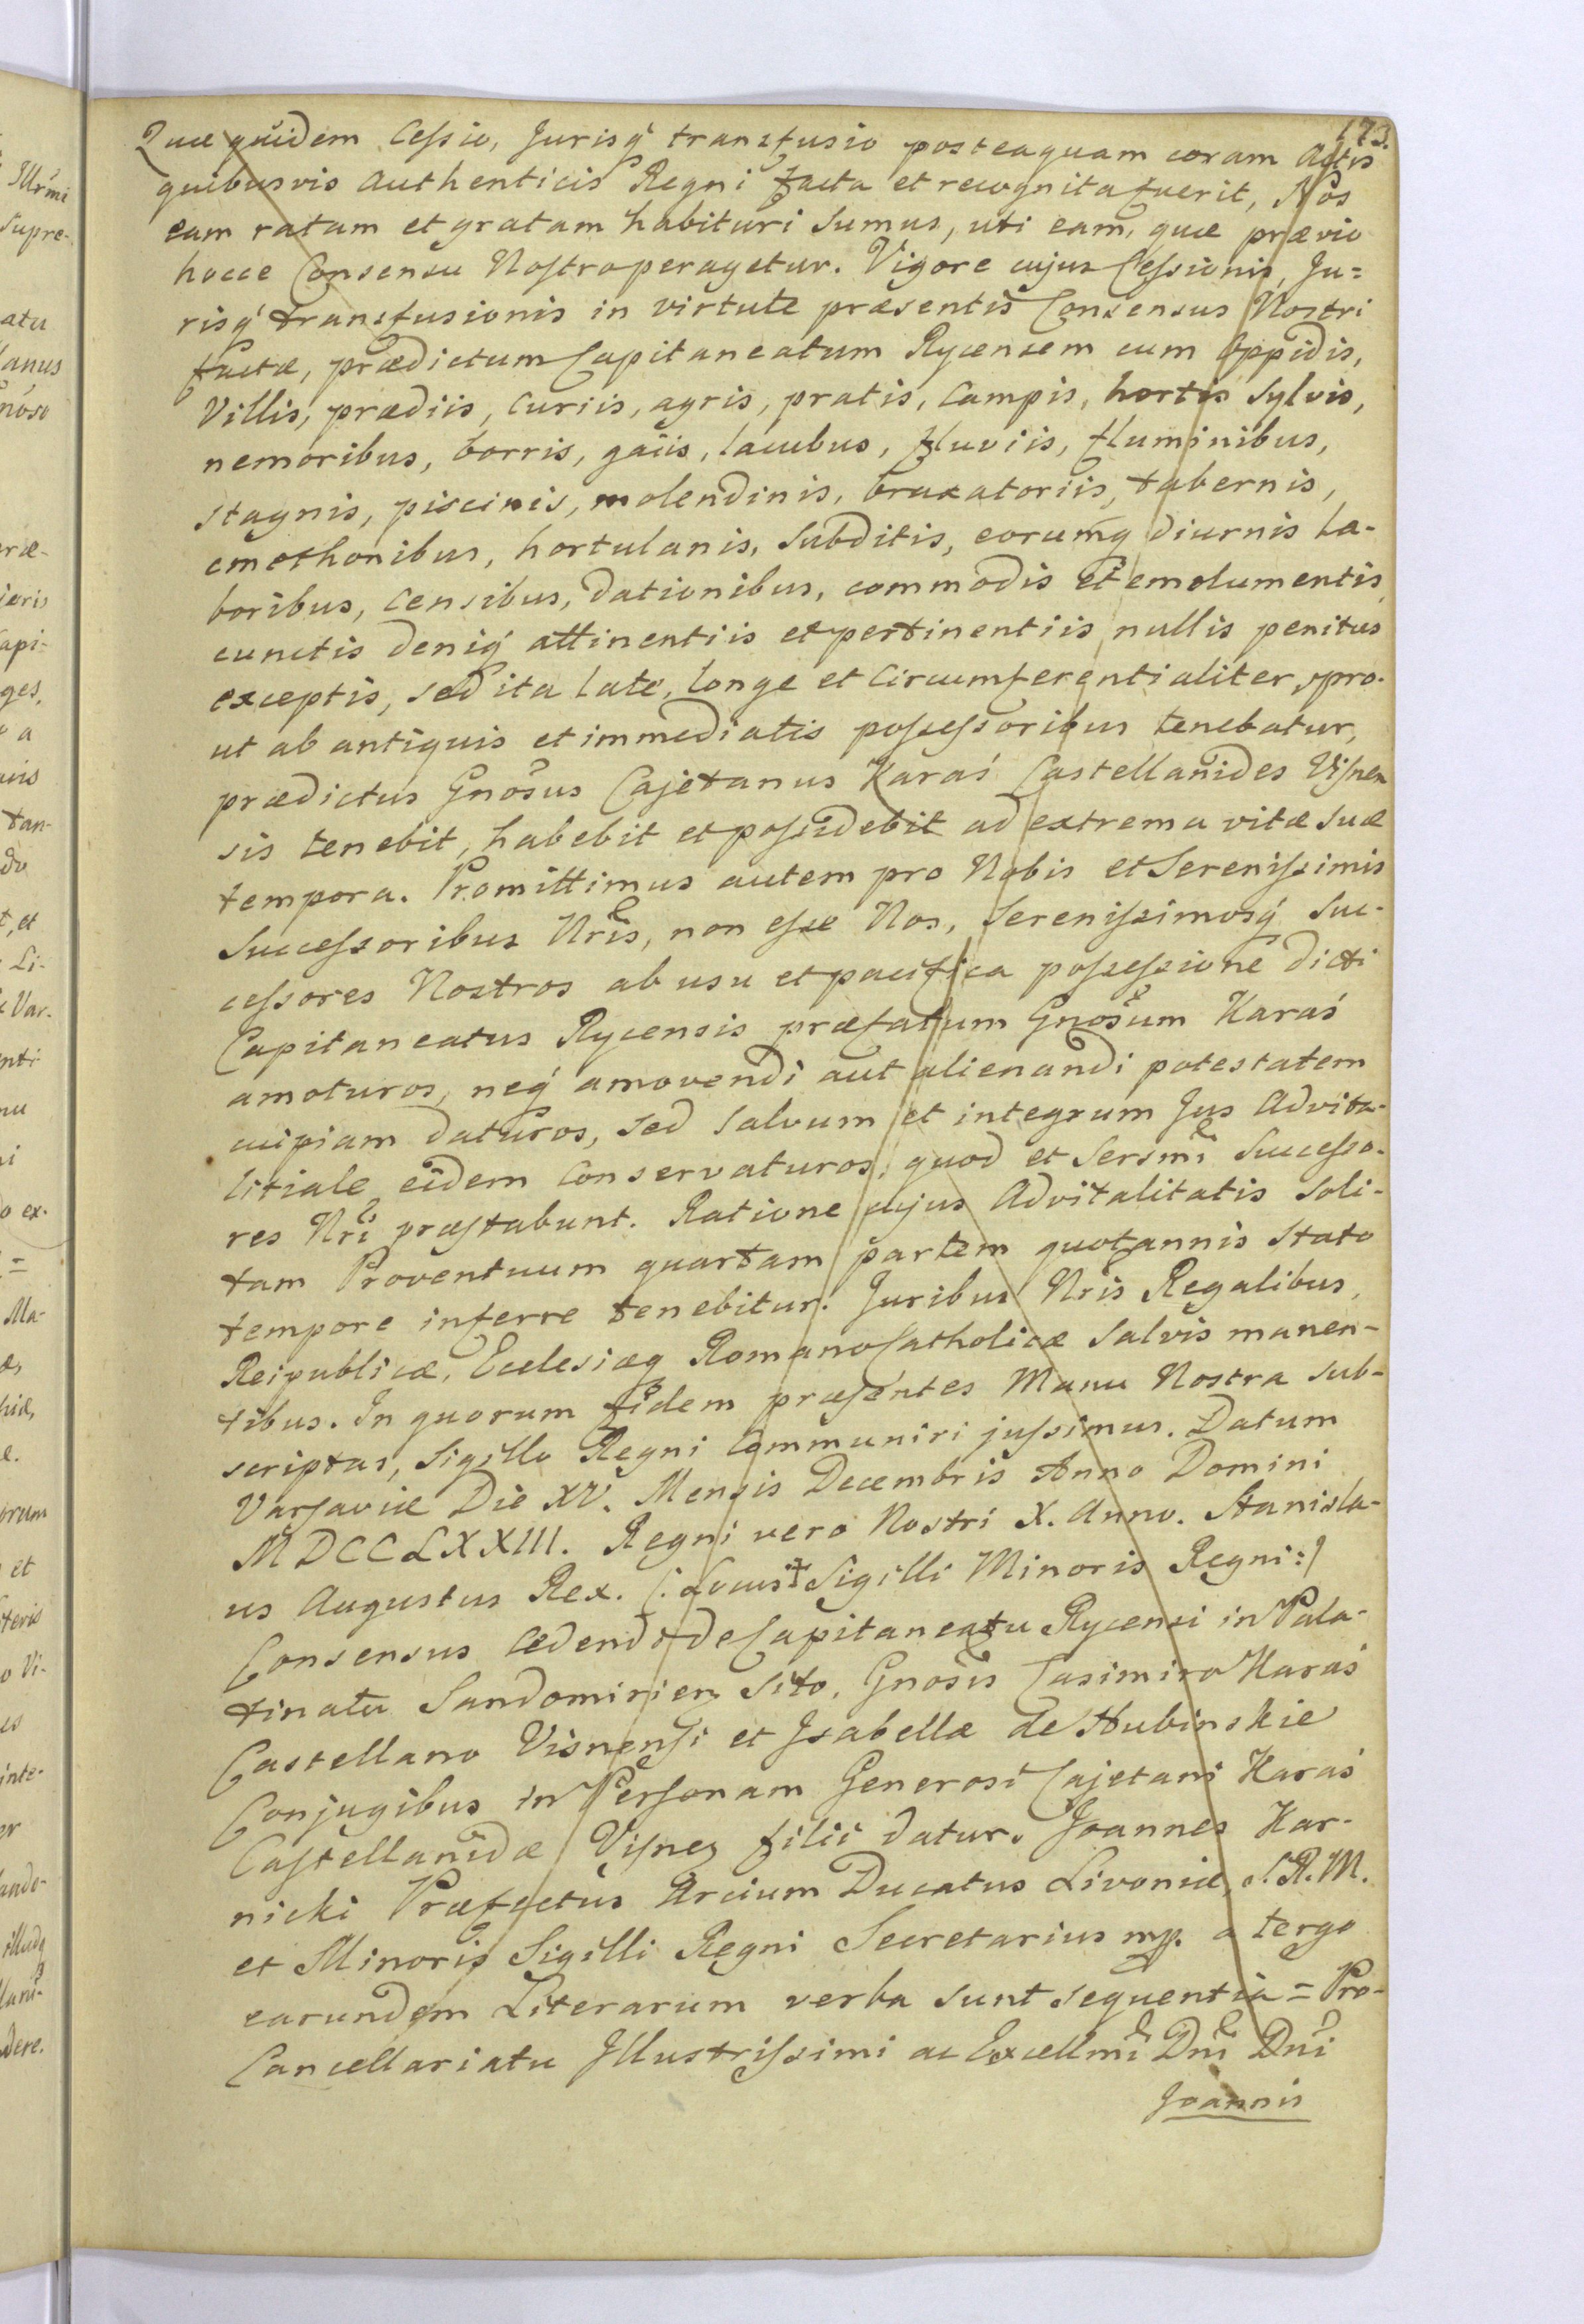 173.
Quæ quidem Cessio, Jurisq́ transfusio posteaquam coram Actis
quibusvis Authenticis Regni facta et recognita fuerit, Nos
eam ratam et gratam habituri sumus, uti eam, quæ prævio
hocce Consensu Nostro peragetur. Vigore cujus Cessionis, Ju=
risq́ transfusionis in virtute præsentis Consensus Nostri
factæ, prædictum Capitaneatum Rycensem cum Oppidis,
Villis, prædiis, curiis, agris, pratis, campis, hortis sylvis,
nemoribus, borris, gaiis, lacubus, fluviis, fluminibus,
stagnis, piscinis, molendinis, braxatoriis, tabernis,
cmethonibus, hortulanis, subditis, eorumq́ diurnis la-
boribus, censibus, dationibus, commodis et emolumentis,
cunctis deniq́ attinentiis et pertinentiis nullis penitus
exceptis, sed ita late, longe et circumferentialiter, pro-
ut ab antiquis et immediatis possessoribus tenebatur,
prædictus Gnosus Cajetanus Karaś Castellanides Visnen
sis tenebit, habebit et possidebit ad extrema vitæ suæ
tempora. Promittimus autem pro Nobis et Serenissimis
Successoribus Nris, non esse Nos, Serenissimosq́ Suc-
cessores Nostros ab usu et pacifica possessione dicti
Capitaneatus Rycensis præfatum Gnosum Karaś
amoturos, neq́ amovendi aut alienandi potestatem
cuipiam daturos, sed salvum et integrum Jus Advita-
litiale eidem conservaturos, quod et Sersmi Successo-
res Nri præstabunt. Ratione cujus Advitalitatis soli-
tam Proventuum quartam partem quotannis stato
tempore inferre tenebitur. Juribus Nris Regalibus,
Reipublicæ, Ecclesiæq Romano Catholicæ salvis manen-
tibus. In quorum fidem præsentes Manu Nostra sub-
scriptas, Sigillo Regni communiri jussimus. Datum
Varsaviæ Die XV. Mensis Decembris Anno Domini
MDCCLXXIII. Regni vero Nostri X. Anno. Stanisla-
us Augustus Rex. (: Locus ‡ Sigilli Minoris Regni :)
Consensus cedendi de Capitaneatu Rycensi in Pala-
tinatu Sandomirien sito, Gnosis Casimiro Karaś
Castellano Visnensi et Isabellæ de Hubinskie
Conjugibus in Personam Generosi Cajetani Karaś
Castellanidæ Visnen filii datur. Joannes Kar-
nicki Præfectus Arcium Ducatus Livoniæ, S.R.M.
et Minoris Sigilli Regni Secretarius mp. a tergo
earundem Literarum verba sunt sequentia = Pro-
Cancellariatu Illustrissimi ac Excellmi Dni Dni
Joannis